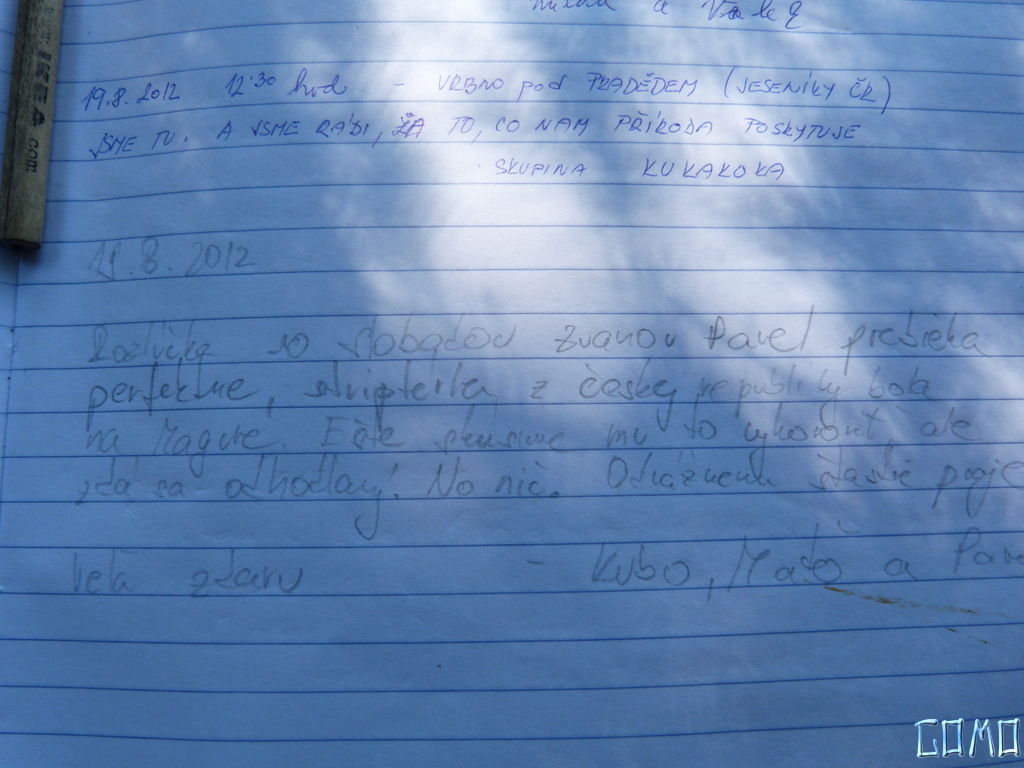 a
IKEA.com
19.8.2012 12:30 hod - VRBNO pod PRADĚDEM (JESENÍKY ČR)
JSME TU. A JSME RÁDI, ZA TO, CO NAM PŘÍRODA POSKYTUJE
SKUPINA KUKAKOKA
19.8.2012
Rozlúčka so slobodou zvanou Pavel prebieha
perfektne, striptérka z českej republiky bola
na Magure. Ešte skúsime mu to vyhovoriť, ale
zdá sa odhodlaný! No nič.
Veľa zdaru - Kubo, Maťo a
GOMO